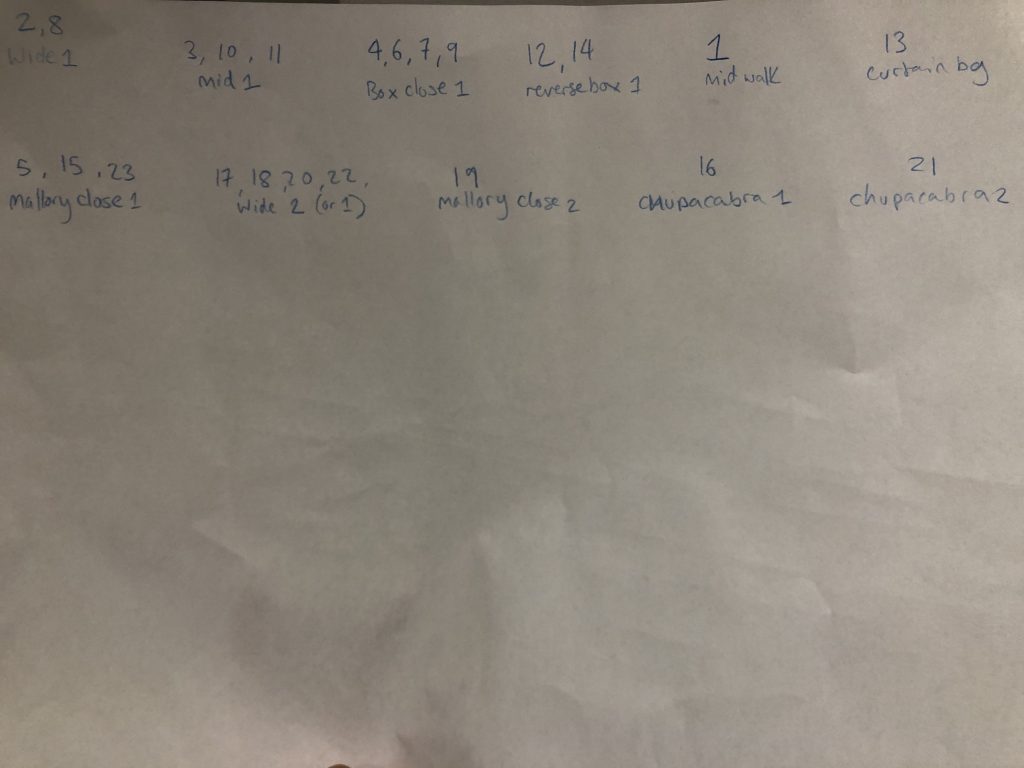 2,8
Wide 1
3, 10, 11
mid 1
4,6,7,9
Box close 1
12, 14
reverse box 1
1
mid walk
13
curtain bg
5, 15, 23
mallory close 1
17, 18, 20, 22,
Wide 2 (or 1)
19
mallory close 2
16
chupacabra 1
21
chupacabra 2